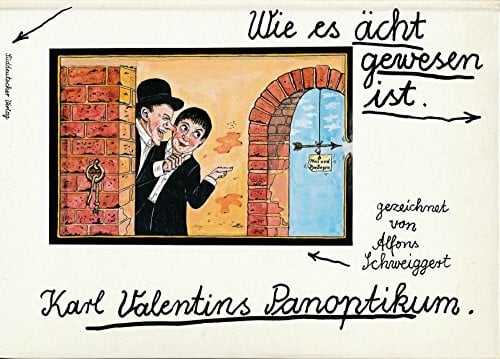 Süddeutscher Verlag
Wie es ächt
gewesen
ist.
gezeichnet
von
Alfons
Schweiggert
Karl Valentins Panoptikum.